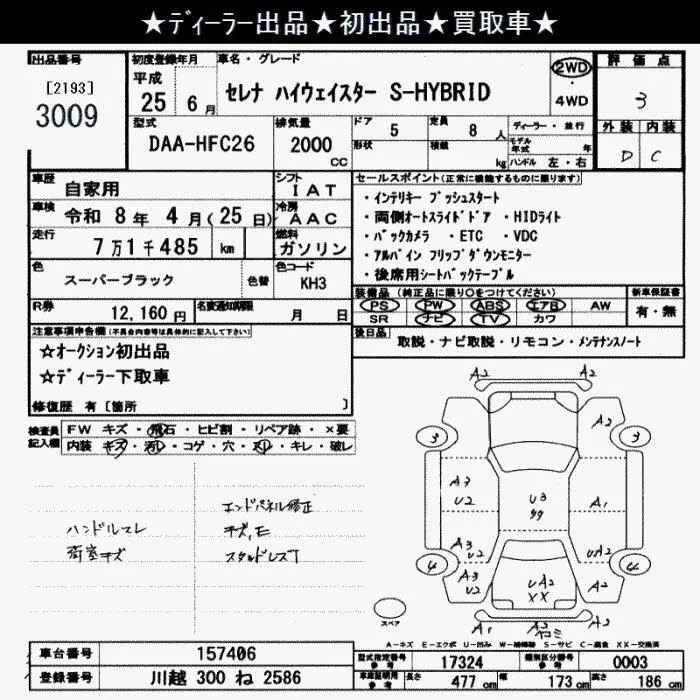 ★ディーラー出品★初出品★買取車★
出品番号
[2193]
3009
初度登録年月
平成
25年 6月
車名・グレード
セレナ ハイウェイスター S-HYBRID
2WD
・
4WD
評価点
3
外装 内装
D C
型式
DAA-HFC26
排気量
2000
CC
ドア 5
形状
定員 8 人
積載 kg
ディーラー・並行
モデル年式 年
ハンドル 左・右
車歴 自家用
シフト IAT
車検 令和 8年 4月(25日)
冷房 AAC
走行 7万1千485 km
燃料 ガソリン
色 スーパーブラック
色替
色コード KH3
R券 12,160円
名変通知期限 月 日
セールスポイント(正常に機能するものに限ります)
・インテリキー プッシュスタート
・両側オートスライドドア ・HIDライト
・バックカメラ ・ETC ・VDC
・アルパイン フリップダウンモニター
・後席用シートバックテーブル
装備品(純正品に限り○をつけてください)
PS PW ABS エアB AW
SR ナビ TV カワ
新車保証書
有・無
後日品
取説・ナビ取説・リモコン・メンテナンスノート
注意事項申告欄(不具合内容等は具体的に記入して下さい)
★オークション初出品
★ディーラー下取車
修復歴 有[箇所 ]
検査員記入欄
FW キズ・飛石・ヒビ割・リペア跡・×要
内装 キズ・汚レ・コゲ・穴・スレ・キレ・破レ
ハンドルスレ
荷室キズ
エンドパネル修正
キズ、モ
スタッドレスT
A2 A2
3 A2 3
A3 U2 U3 A1
A3 U2 UA2
4 UA2 XX A2 4
A1 A2
スペア
A-キズ E-エクボ U-凹み W-補修跡 S-サビ C-腐食 XX-交換済
車台番号 157406
登録番号 川越 300 ね 2586
型式指定番号 参考 17324
類別区分番号 参考 0003
車庫証明用 参考 長さ 477 cm 幅 173 cm 高さ 186 cm